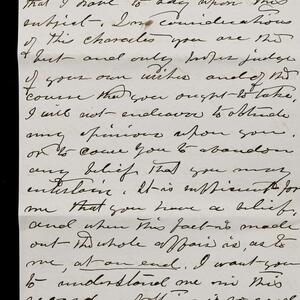 that I have to say upon this
subject. In considerations
of this character you are the
best and only proper judge
of your own wishes and of the
course that you ought to take.
I will not endeavor to obtrude
my opinions upon you,
or to cause you to abandon
any belief that you may
entertain. It is sufficient for
me that you have a belief,
and when this fact is made
out the whole affair is, as to
me, at an end. I want you
to understand me in this